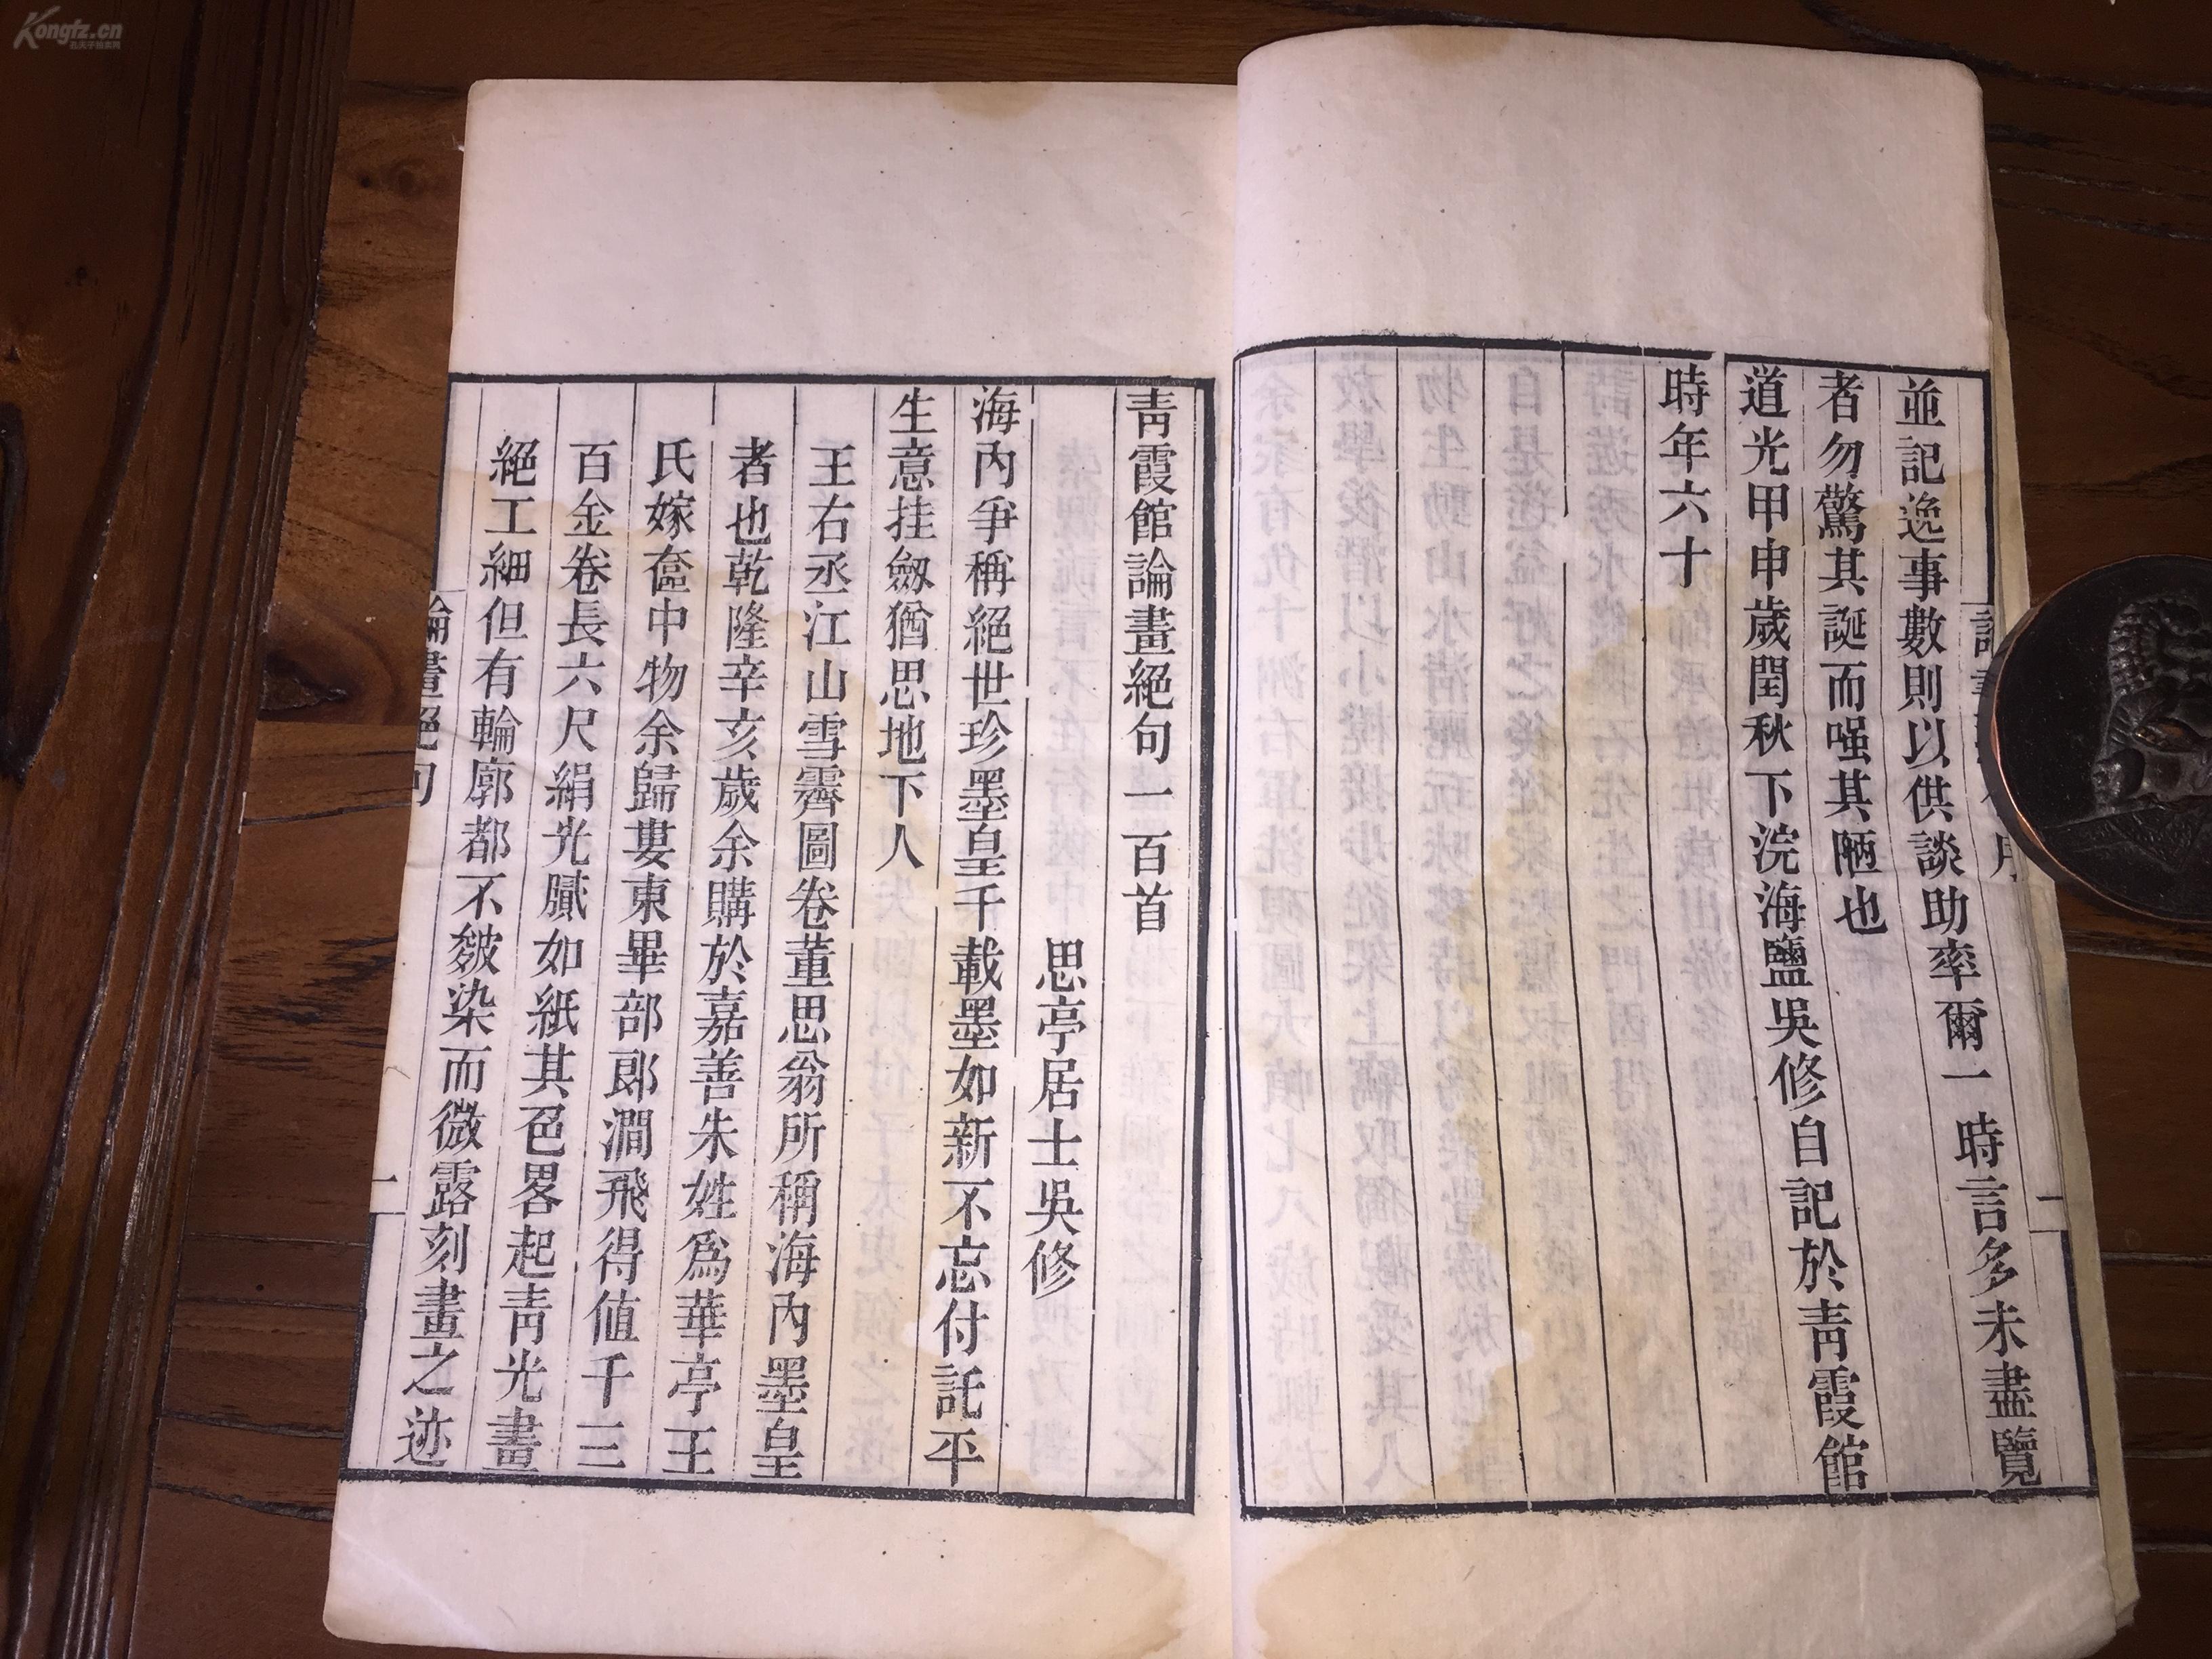 並記逸事數則以供談助率爾一時言多未盡覽
者勿驚其誕而嗤其陋也
道光甲申歲閏秋下浣海鹽吳修自記於靑霞館
時年六十
二
靑霞館論畫絕句一百首
思亭居士吳修
海內爭稱絕世珍墨皇千載墨如新不忘付託平
生意挂劒猶思地下人
王右丞江山雪霽圖卷董思翁所稱海內墨皇
者也乾隆辛亥歲余購於嘉善朱姓爲華亭王
氏嫁奩中物余歸婁東畢部郎澗飛得值千三
百金卷長六尺絹光膩如紙其色畧起靑光畫
絕工細但有輪廓都不皴染而微露刻畫之迹
論畫絕句
一
Kongfz.cn